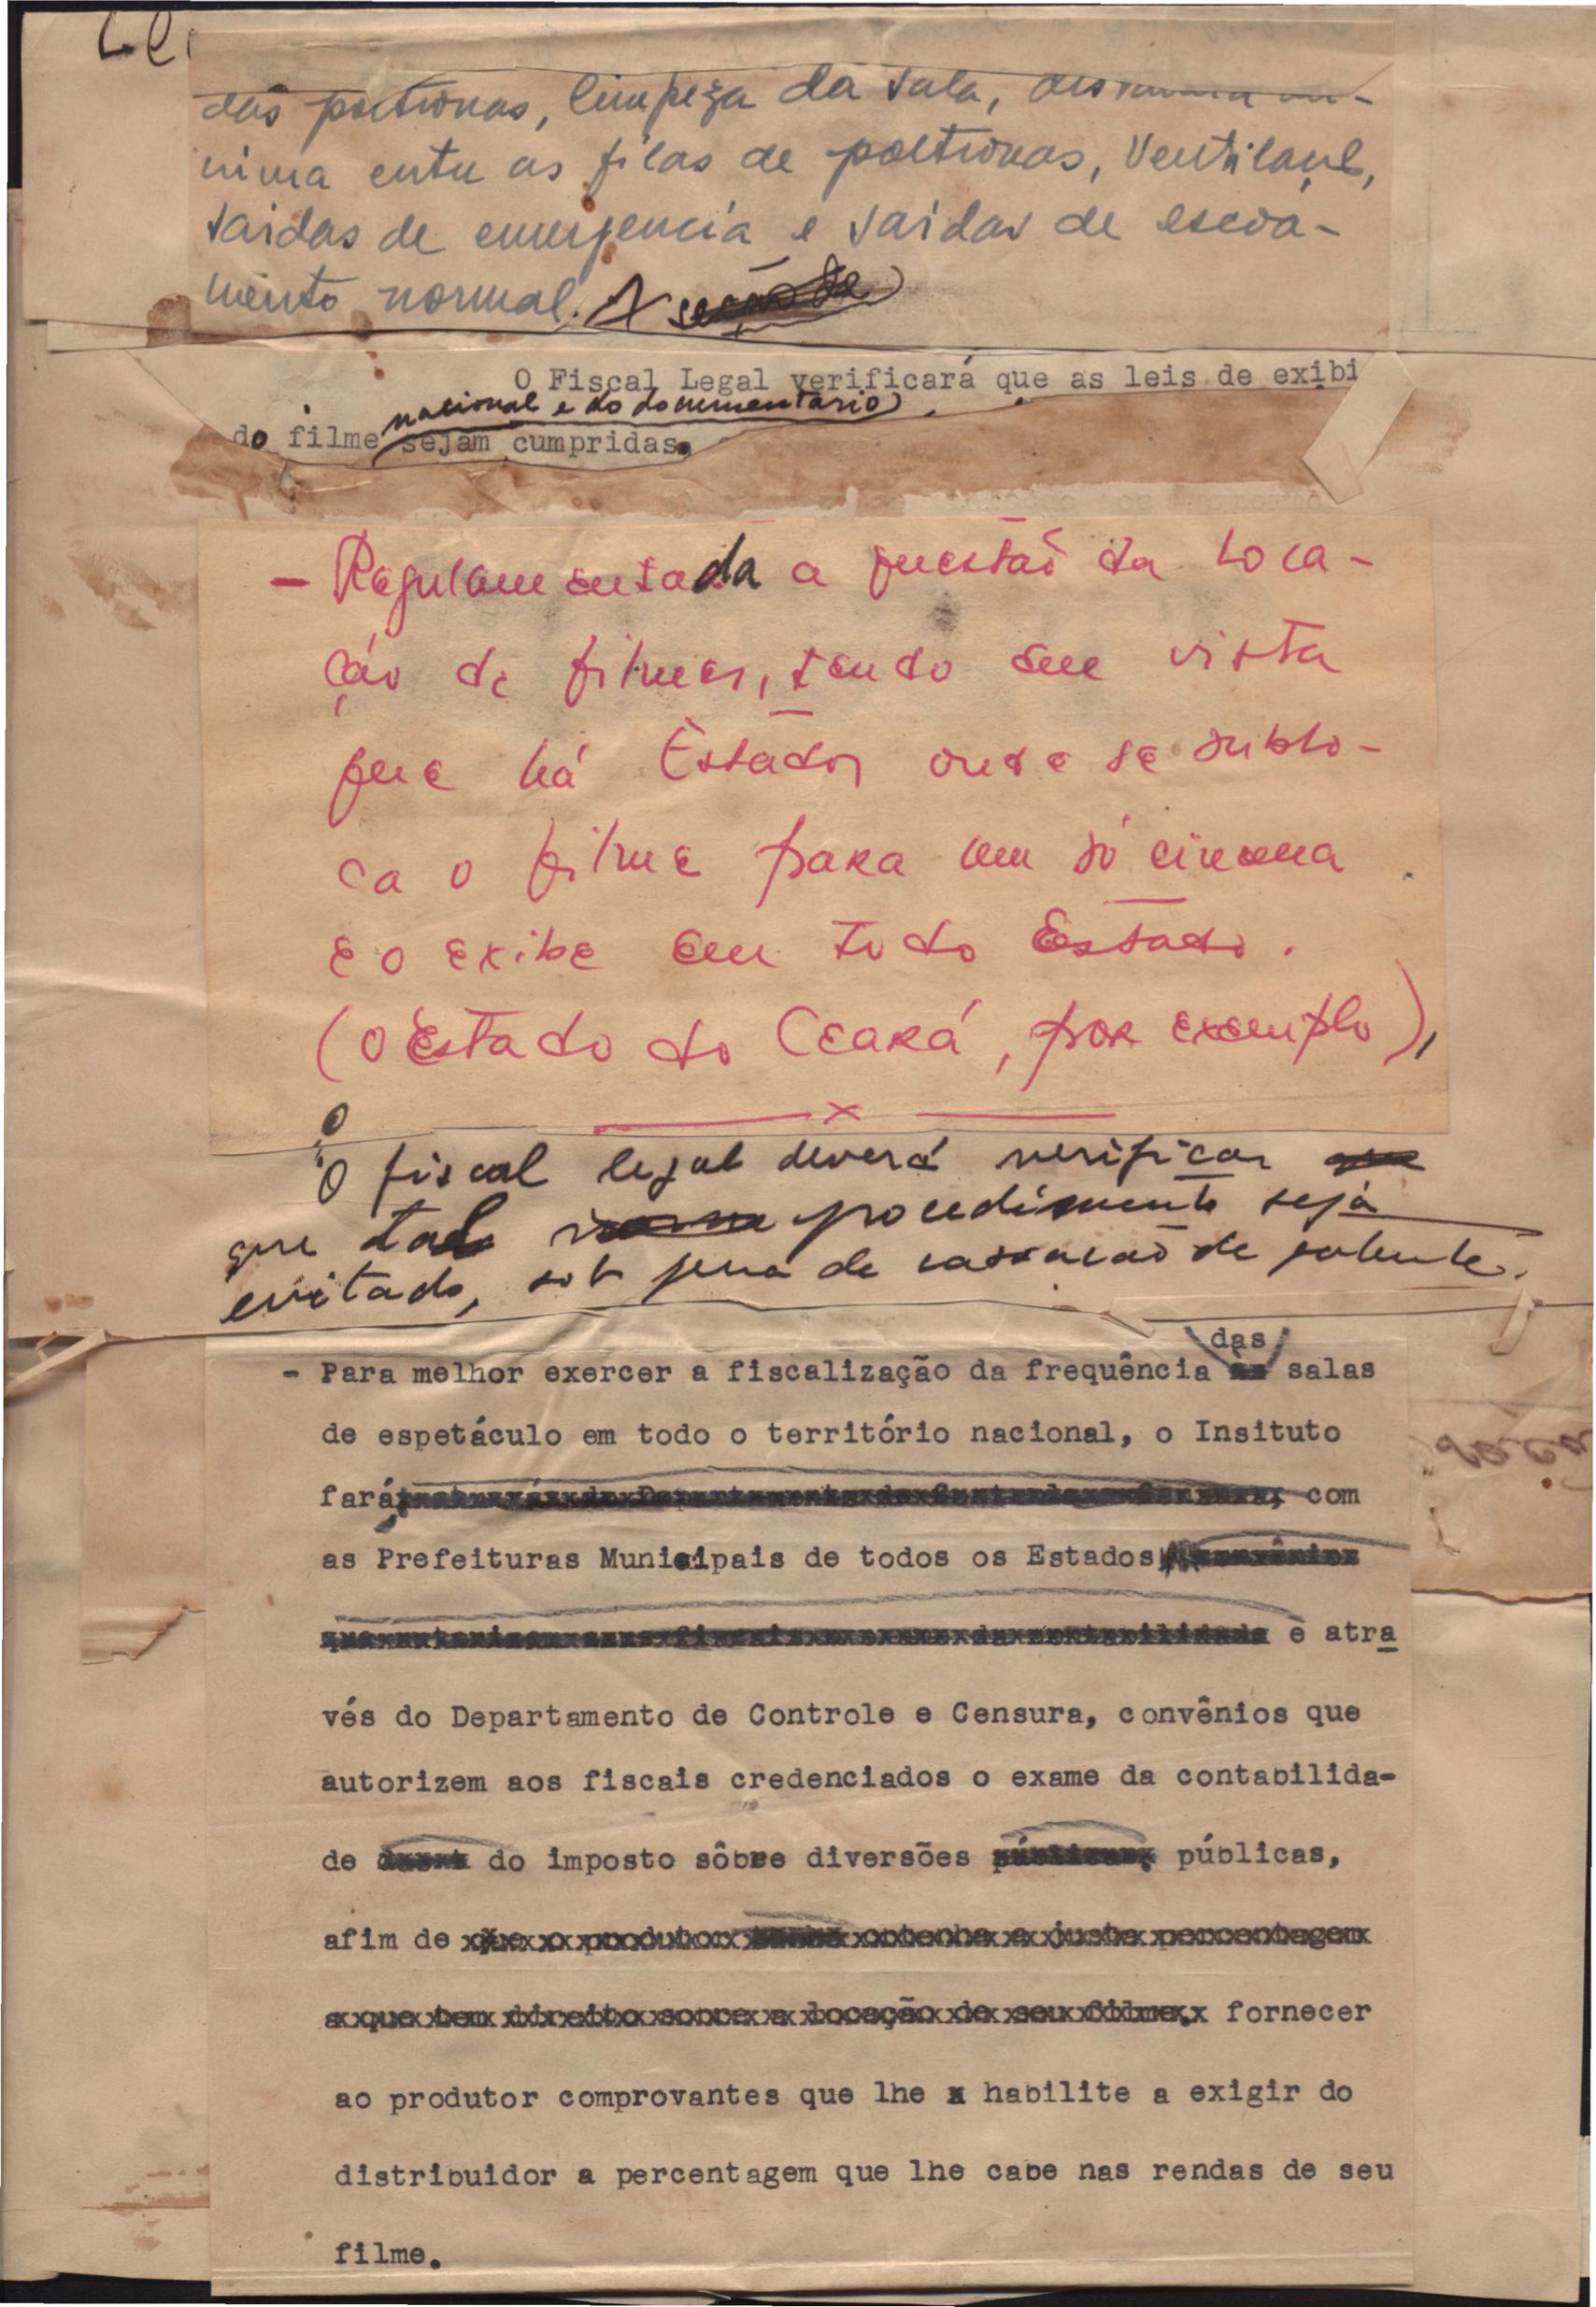 das poltronas, limpeza da sala, distancia mi-
nima entre as filas de poltronas, Ventilação,
saidas de emergencia e saidas de escoa-
mento normal. A seção de
O Fiscal Legal verificará que as leis de exibi
nacional e do documentario
do filme sejam cumpridas.
- Regulamentada a questão da loca-
ção de filmes, tendo em vista
que há Estados onde se sublo-
ca o filme para um só cinema
e o exibe em todo Estado.
(O Estado do Ceará, por exemplo),
x
O
O fiscal legal deverá verificar que
que tal procedimento seja
evitado, sob pena de cassação de patente.
das
- Para melhor exercer a fiscalização da frequência às salas
de espetáculo em todo o território nacional, o Insituto
fará, com
as Prefeituras Municipais de todos os Estados, convênios
que autorizem e atra
vés do Departamento de Controle e Censura, convênios que
autorizem aos fiscais credenciados o exame da contabilida-
de do imposto sôbre diversões públicas, públicas,
afim de que o produtor obtenha a justa percentagem
a que tem direito sobre a locação de seu filme. fornecer
ao produtor comprovantes que lhe x habilite a exigir do
distribuidor a percentagem que lhe cabe nas rendas de seu
filme.